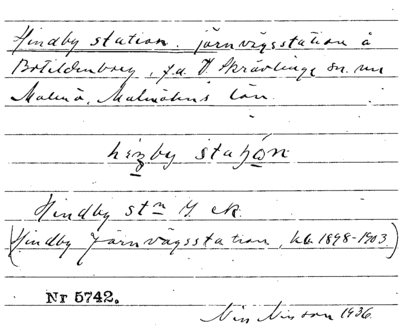 Hindby station. järnvägsstation å
Botildenborg, f.d. V. Skrävlinge sn. nu
Malmö, Malmöhus län.
hinby station
Hindby stn G. ek.
(Hindby Järnvägsstation, kb 1898-1903)
Nr 5742.
Nils Nilsson 1936.